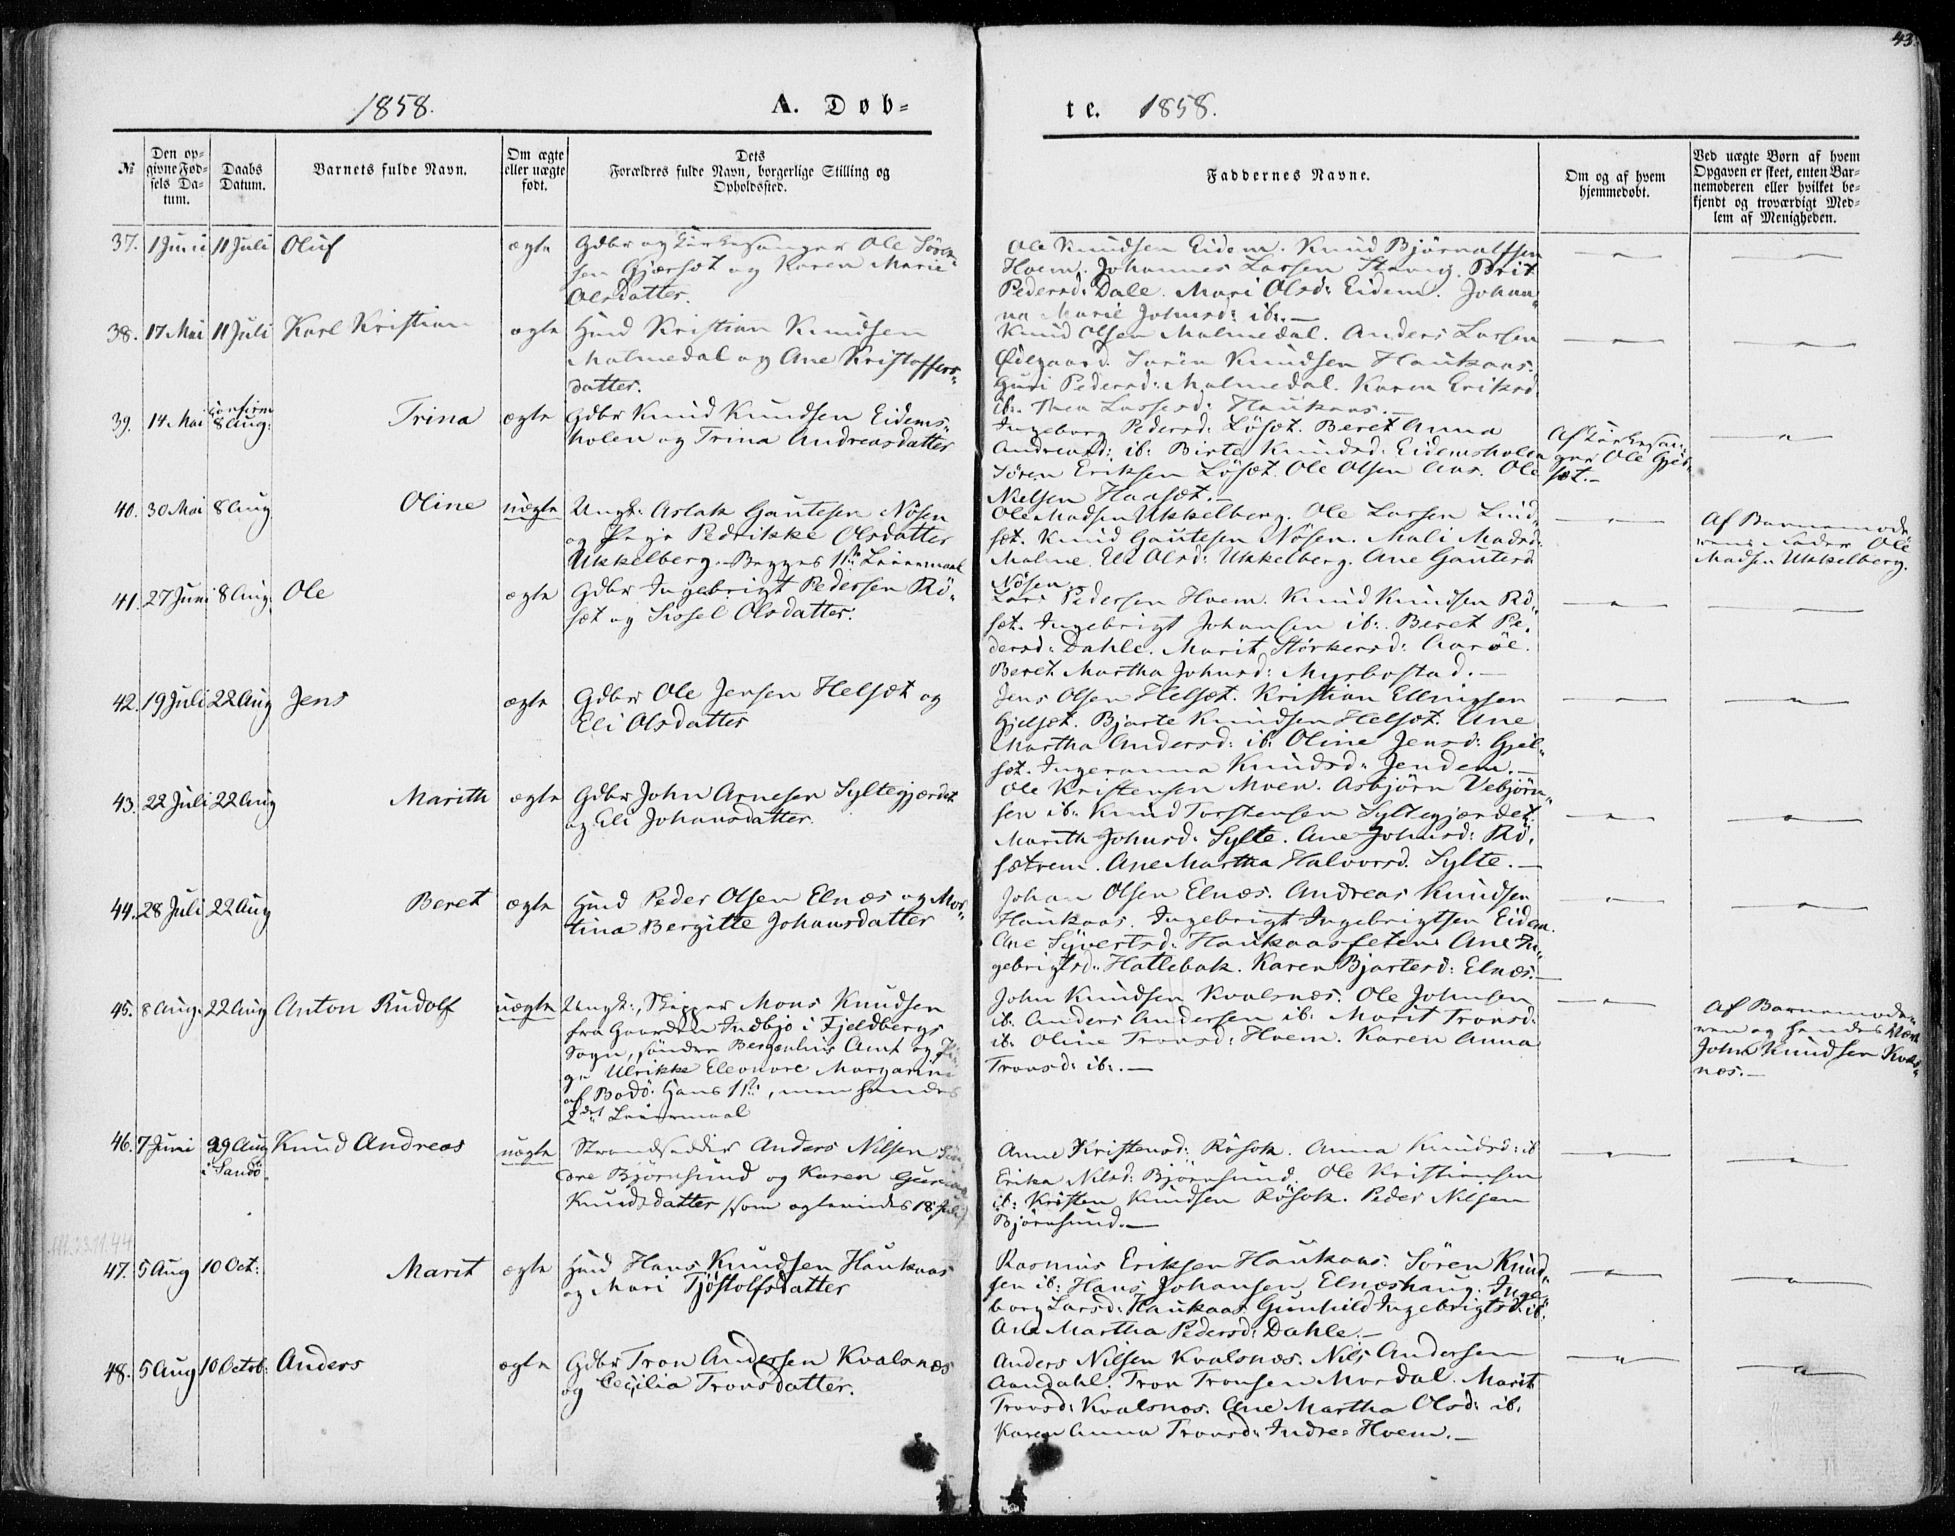 43.
1858. A. Dob-
te. 1858.
№
Den op-
givne Fød-
sels Da-
tum.
Daabs
Datum.
Barnets fulde Navn.
Om ægte
eller uægte
født.
Dets
Forældres fulde Navn, borgerlige Stilling og
Opholdssted.
Faddernes Navne.
Om og af hvem
hjemmedøbt.
Ved uægte Børn af hvem
Opgaven er skeet, enten Bar-
nemoderen eller hvilket be-
kjendt og troværdigt Med-
lem af Menigheden.
37. 1 Juni 11 Juli Oluf ægte Gdbr og Kirkesanger Ole Sören-
sen Gjærset og Karen Marie
Olsdatter.
Ole Knudsen Eidem. Knud Björnalfsen
Hoem. Johannes Larsen Stavig. Brit
Pedersd: Dale. Mari Olsd: Eidem. Johan-
na Marie Johnsd: ib:. —
38. 17 Mai 11 Juli Karl Kristian ægte Hmd Kristian Knudsen
Malmedal og Ane Kristoffers-
datter.
Knud Olsen Malmedal. Anders Larsen
Ödegaard. Sören Knudsen Haukaas.
Guri Pedersd: Malmedal. Karen Eriksd:
ib:. Thea Lassesd: Haukaas. —
39. 14 Mai confirm
8 Aug: Trina ægte Gdbr Knud Knudsen Eidems-
holen og Trina Andreasdatter
Ingeborg Pedersd: Löset. Beret Anna
Andreasd: ib: Birte Knudsd: Eidemsholen
Sören Eriksen Löset. Ole Olsen Aas. Ole
Nielsen Haaset. —
Af Kirkesan-
ger Ole Gjær-
set. —
40. 30 Mai 8 Aug. Oline uægte Ungk: Aslak Gautesen Nösen
og Pige Pedrikke Olsdatter
Ukkelberg. Begges 1ste Leiermaal
Ole Madsen Ukkelberg. Ole Larsen Lind-
set. Knud Gautesen Nösen. Mali Madsd:
Malme. Eli Olsd: Ukkelberg. Ane Gautesd
Nösen. —
Af Barnemode-
rens Fader Ole
Madsen Ukkelberg.
41. 27 Juni 8 Aug. Ole ægte Gdbr Ingebrigt Pedersen Rö-
set og Sissel Olsdatter.
Lars Pedersen Hoem. Knud Knudsen Rö-
set. Ingebrigt Johansen ib:. Beret Pe-
dersd: Dahle. Marit Störkersd: Aaröe.
Beret Martha Johnsd: Myrbostad. —
42. 19 Juli 22 Aug Jens ægte Gdbr Ole Jensen Helset og
Eli Olsdatter
Jens Olsen Helset. Kristian Ellingsen
Gjelset. Bjarte Knudsen Helset. Ane
Martha Andersd: ib: Oline Jensd: Gjel-
set. Ingeranna Knudsd: Jendem. —
43. 22 Juli 22 Aug Marith ægte Gdbr John Arnesen Syltegjærdet
og Eli Johansdatter.
Ole Kristensen Moen. Asbjörn Vebjörn-
sen ib: Knud Torstensen Syltegjærdet.
Marith Johnsd: Sylte. Ane Johnsd: Rö-
sætrem. Ane Martha Halvorsd. Sylte. —
44. 28 Juli 22 Aug Beret ægte Hmd Peder Olsen Elnæs og Mar-
tina Bergitte Johansdatter
Johan Olsen Elnæs. Andreas Knudsen
Haukaas. Ingebrigt Ingebrigtsen Eidem.
Ane Syvertsd: Haukaasfeten. Ane In-
gebrigtsd: Hattebak. Karen Bjartesd: Elnæs. —
45. 8 Aug. 22 Aug Anton Rudolf uægte Ungk:, Skipper Mons Knudsen
fra Gaarden Indbjo i Fjeldbergs
Sogn, söndre Bergenhus Amt og Pi-
ge Ulrikke Eleonore Margarine
af Bodö. Hans 1ste, men hendes
2det Leiermaal
John Knudsen Kvalsnæs. Ole Johnsen
ib: Anders Andersen ib: Marit Tronsd:
ib: Oline Tronsd: Hoem. Karen Anna
Tronsd: ib:. —
Af Barnemode-
ren og hendes Vært
John Knudsen Kvals-
næs. —
46. 7 Juni 29 Aug
i Sandö. Knud Andreas uægte Strandsidder Anders Nilsen Sön-
dre Björnsund og Karen Gurine
Knudsdatter (som ægteviedes 18 Juli)
Anne Kristensd: Rösok. Anna Knudsd: ib
Erika Nilsd: Björnsund. Ole Kristiansen
ib: Kristen Knudsen Rösok. Peder Nilsen
Björnsund. —
47. 5 Aug 10 Oct: Marit ægte Hmd Hans Knudsen Haukaas
og Mari Tjöstolfsdatter
Rasmus Eriksen Haukaas. Sören Knud-
sen ib: Hans Johansen Elnæshaug. Inge-
borg Larsd: Haukaas. Gunhild Ingebrigtsd: ib:
Ane Martha Pedersd: Dahle. —
48. 5 Aug 10 Octob: Anders ægte Gdbr Tron Andersen Kvalsnæs
og Cecilia Tronsdatter.
Anders Nilsen Kvalsnæs. Nils Andersen
Aandahl. Tron Tronsen Mordal. Marit
Tronsd: Kvalsnæs. Ane Martha Olsd: ib:
Karen Anna Tronsd: Indre Hoem. —